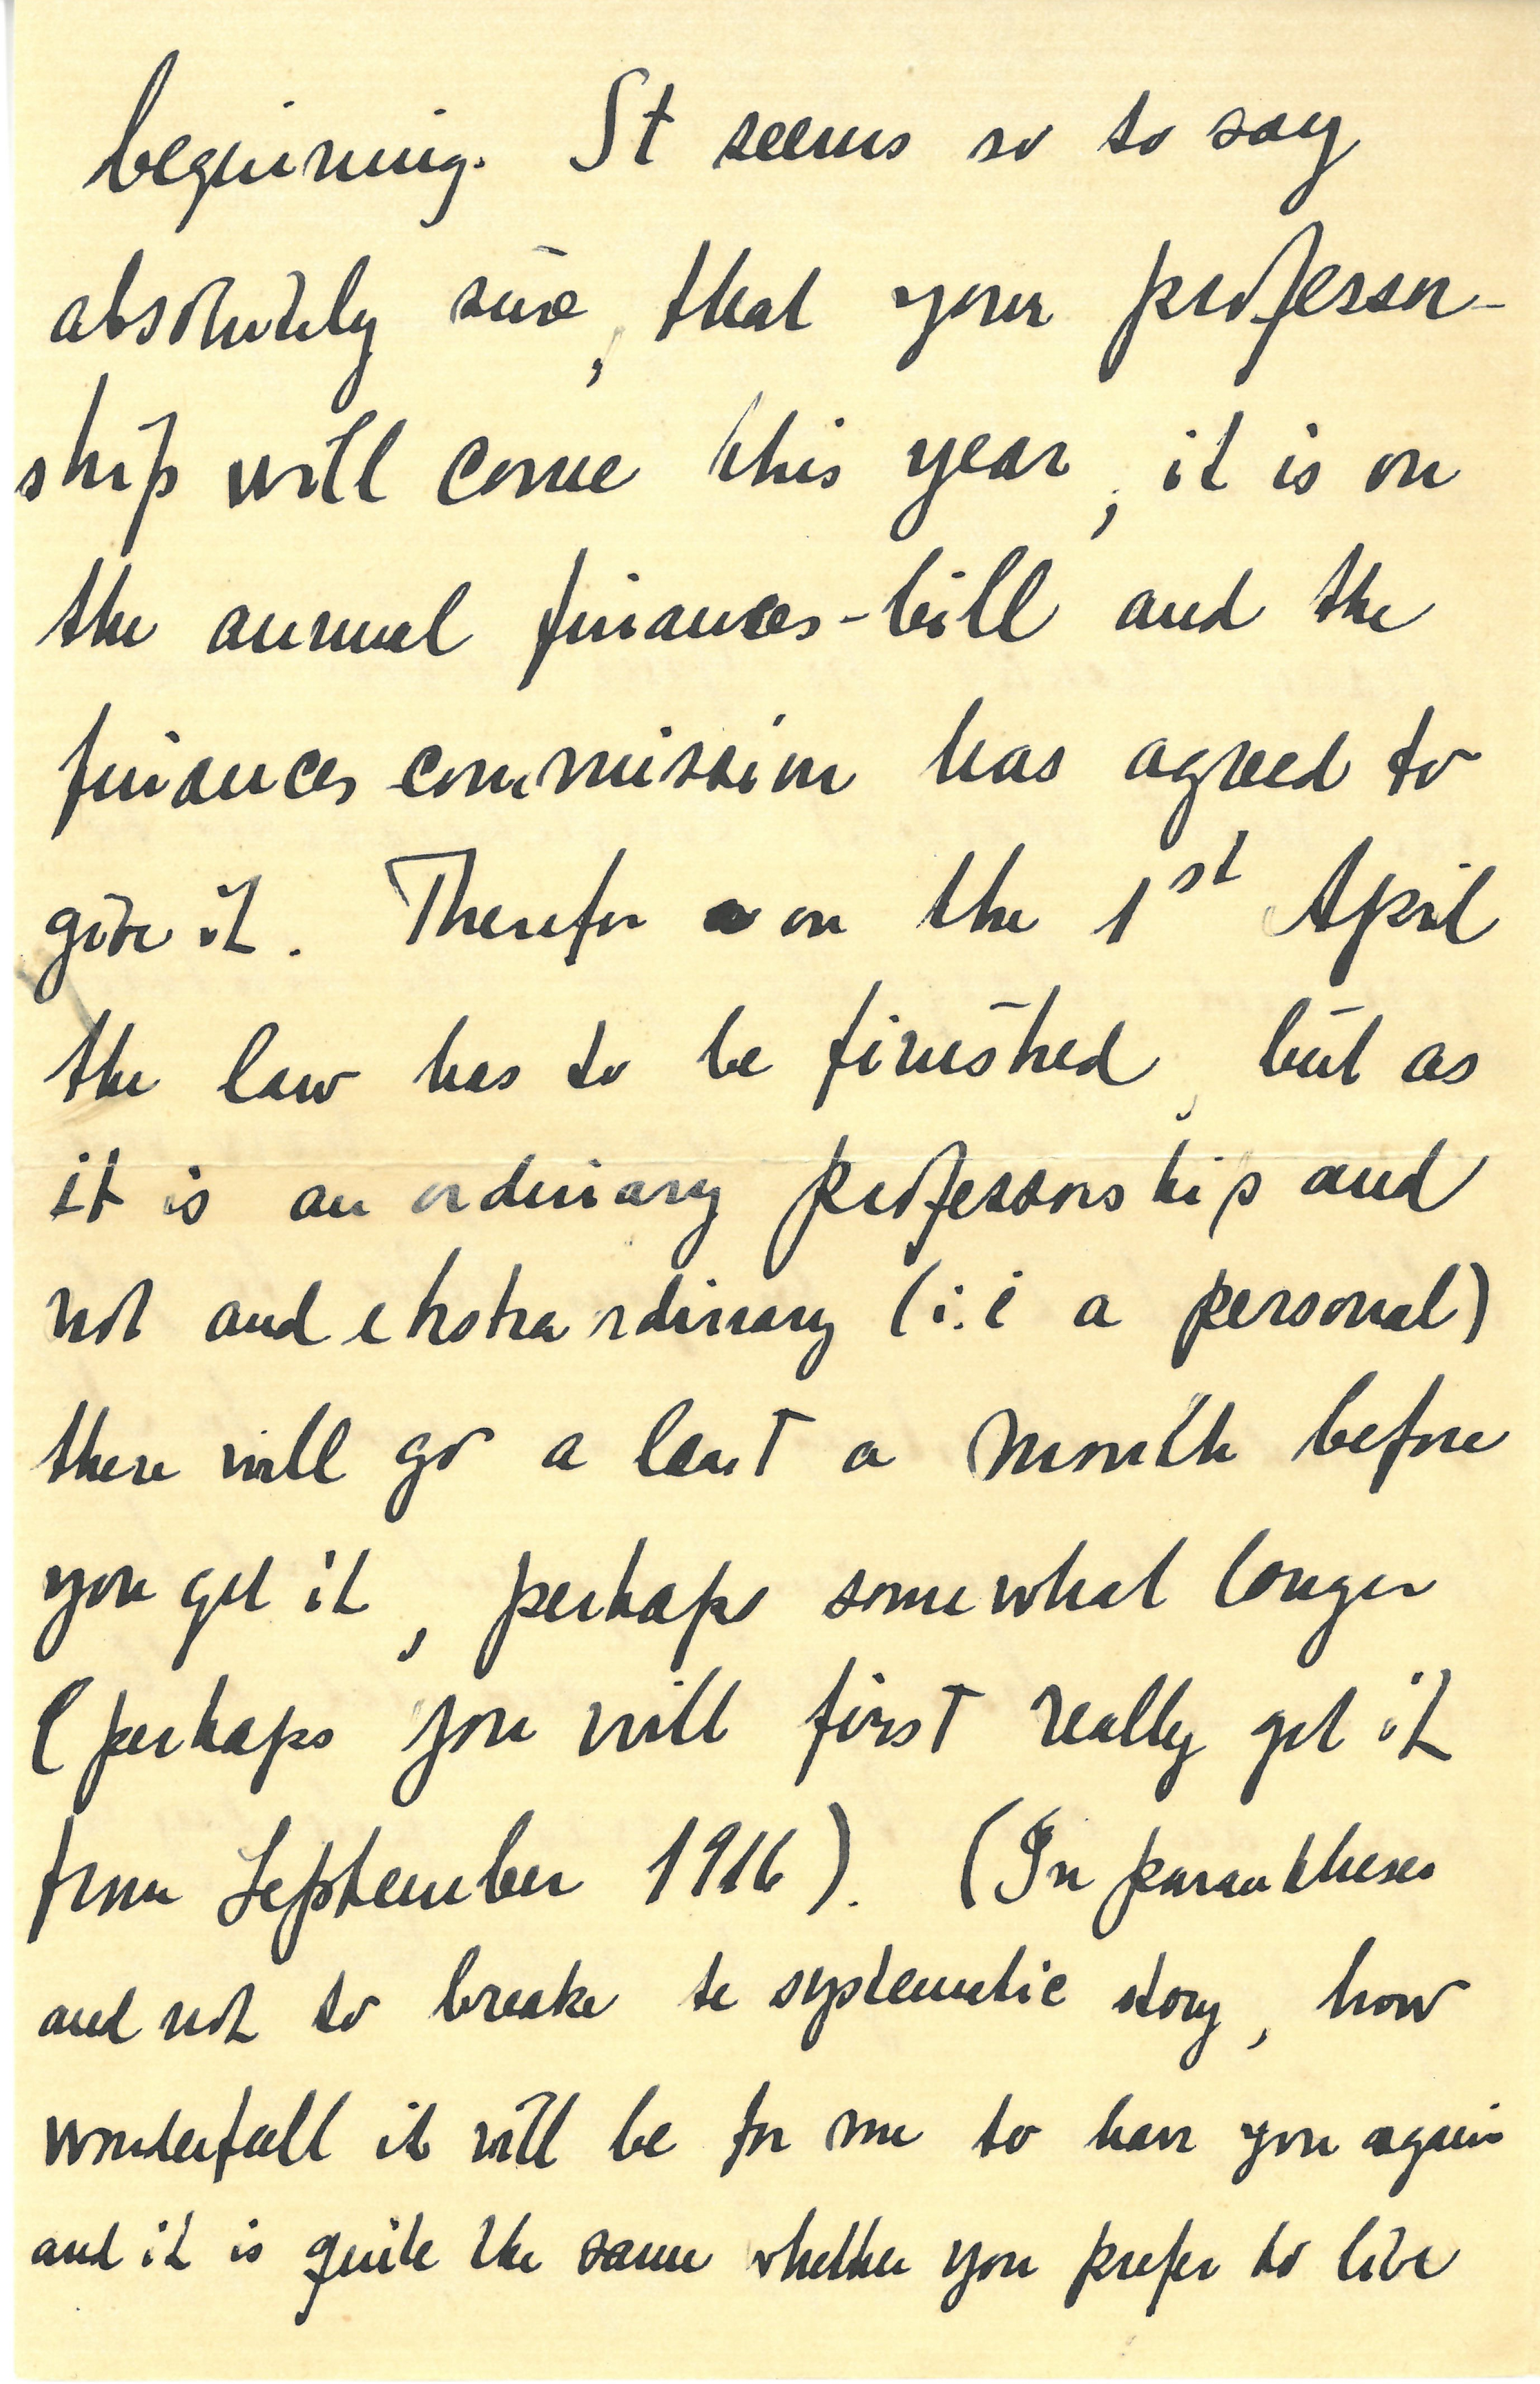 beginning. It seems so to say
absolutely sure, that your professor-
ship will come this year, it is on
the annual finances-bill and the
finances commission has agreed to
give it. Therefor on the 1st April
the law has to be finished, but as
it is an ordinary professorship and
not and ekstraordinary (i.e a personal)
there will go a least a month before
you get it, perhaps somewhat longer
(perhaps you will first really get it
from September 1916). (In parantheses
and not to breake te systematic story, how
wonderfull it will be for me to have you again
and it is quite the same whether you prefer to live